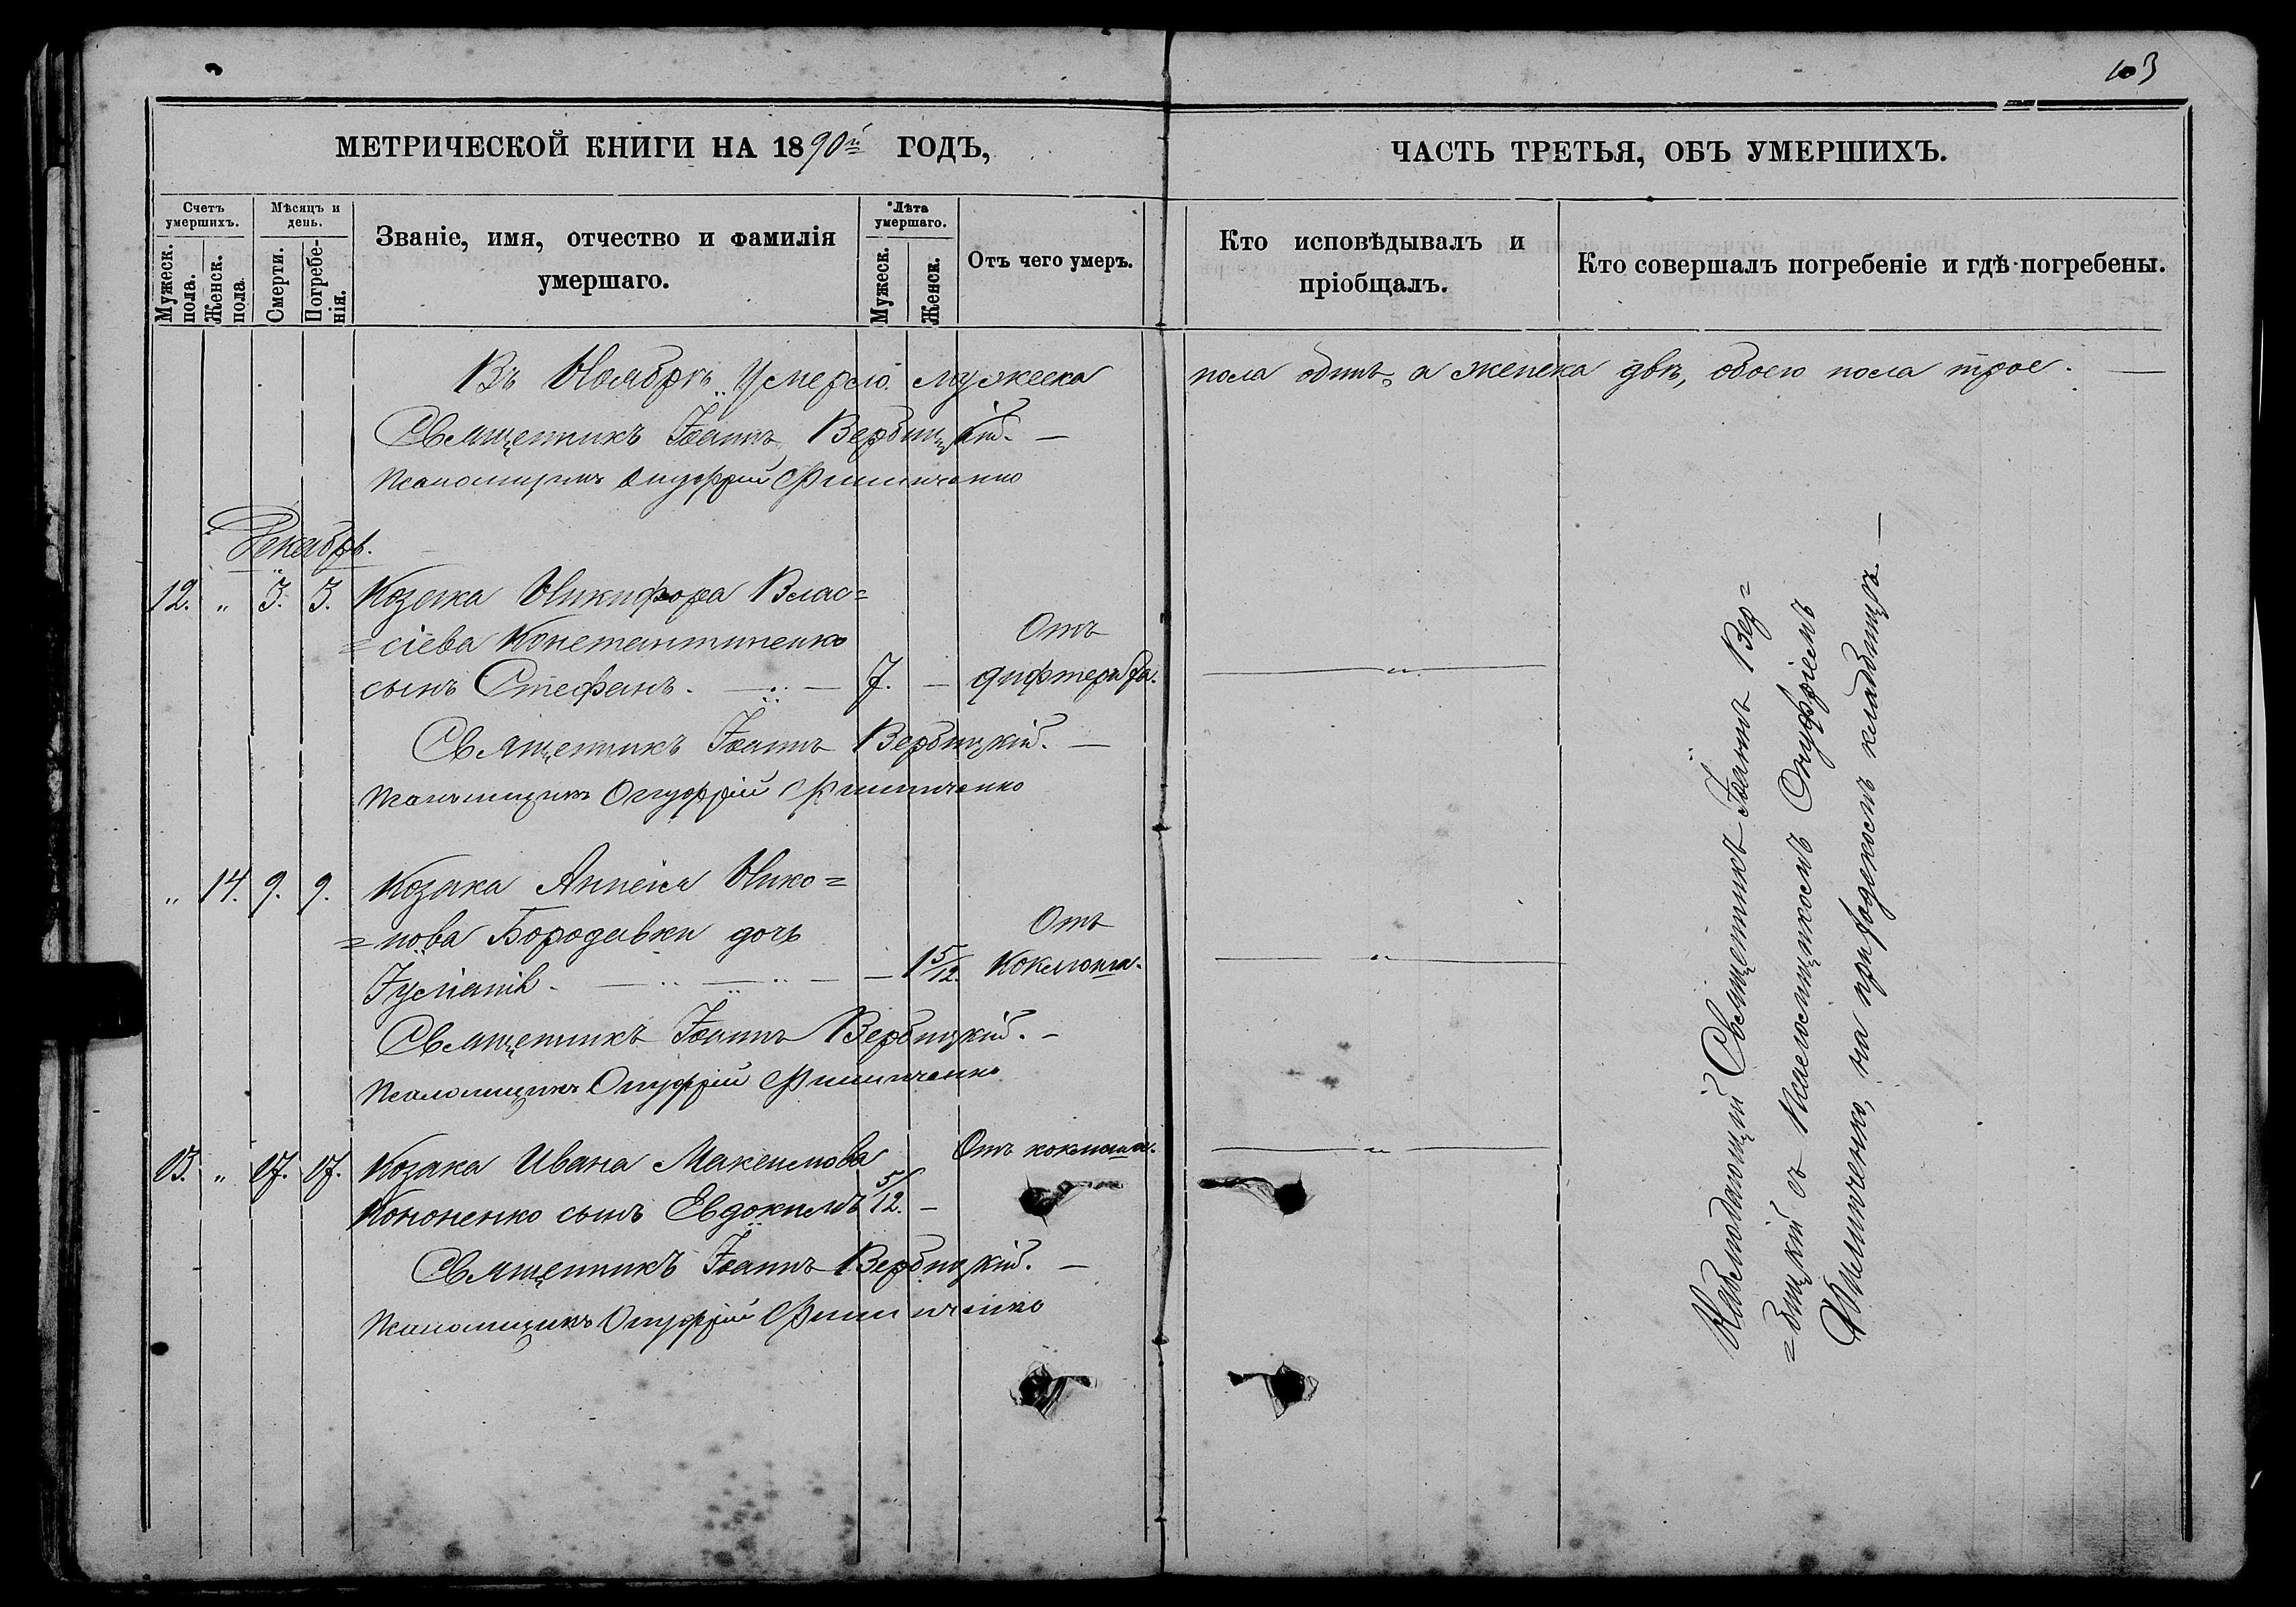 103
МЕТРИЧЕСКОЙ КНИГИ НА 1890й ГОДЪ,
ЧАСТЬ ТРЕТЬЯ, ОБЪ УМЕРШИХЪ.
Счетъ умершихъ.
Мужеск. пола.
Женск. пола.
Мѣсяцъ и день.
Смерти.
Погребенія.
Званіе, имя, отчество и фамилія
умершаго.
Лѣта умершаго.
Мужеск.
Женск.
Отъ чего умеръ.
Кто исповѣдывалъ и
пріобщалъ.
Кто совершалъ погребеніе и гдѣ погребены.
Въ Ноябрѣ умерло мужеска пола одинъ, а женска двѣ, обоего пола трое. —
Священникъ Іоаннъ Вербицкій. —
Псаломщикъ Онуфрій Филипченко
Декабрь.
12. „ 3. 3. Козака Никифора Влас=
=сіева Константиненко Отъ
сынъ Стефанъ. — 7. — дифтерита. — „ —
Священникъ Іоаннъ Вербицкій. —
Псаломщикъ Онуфрій Филипченко
„ 14. 9. 9. Козака Нико=
=нова Бородавки дочь Отъ
— 1 5/12. Коклюша. — „ —
Священникъ Іоаннъ Вербицкій. —
Псаломщикъ Онуфрій Филипченко
13. „ 17. 17. Козака Ивана Максимова Отъ коклюша. — „ —
Кононенко сынъ Евдокимъ 5/12. —
Священникъ Іоаннъ Вербицкій. —
Псаломщикъ Онуфрій Филипченко
Священникъ Іоаннъ Вер=
=бицкій съ Псаломщикомъ Онуфріемъ
Филипченко, на приходскомъ кладбищѣ. —